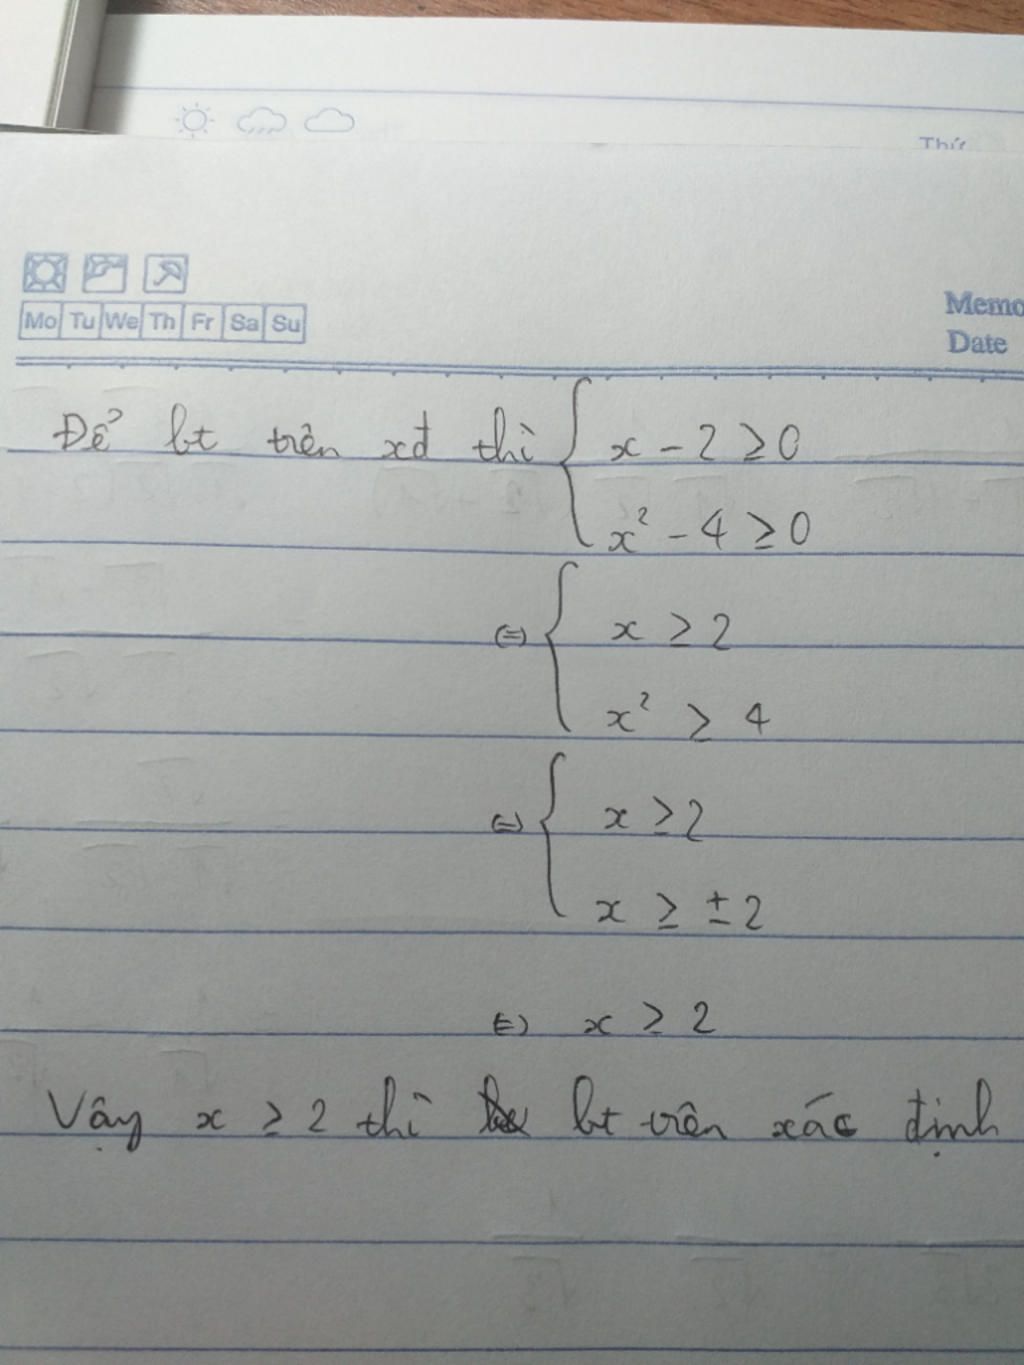 Thứ
Memo
Mo Tu We Th Fr Sa Su
Date
Để bt trên xđ thì { x - 2 ≥ 0
x² - 4 ≥ 0
⇔ { x ≥ 2
x² ≥ 4
⇔ { x ≥ 2
x ≥ ± 2
⇔ x ≥ 2
Vậy x ≥ 2 thì bt trên xác định